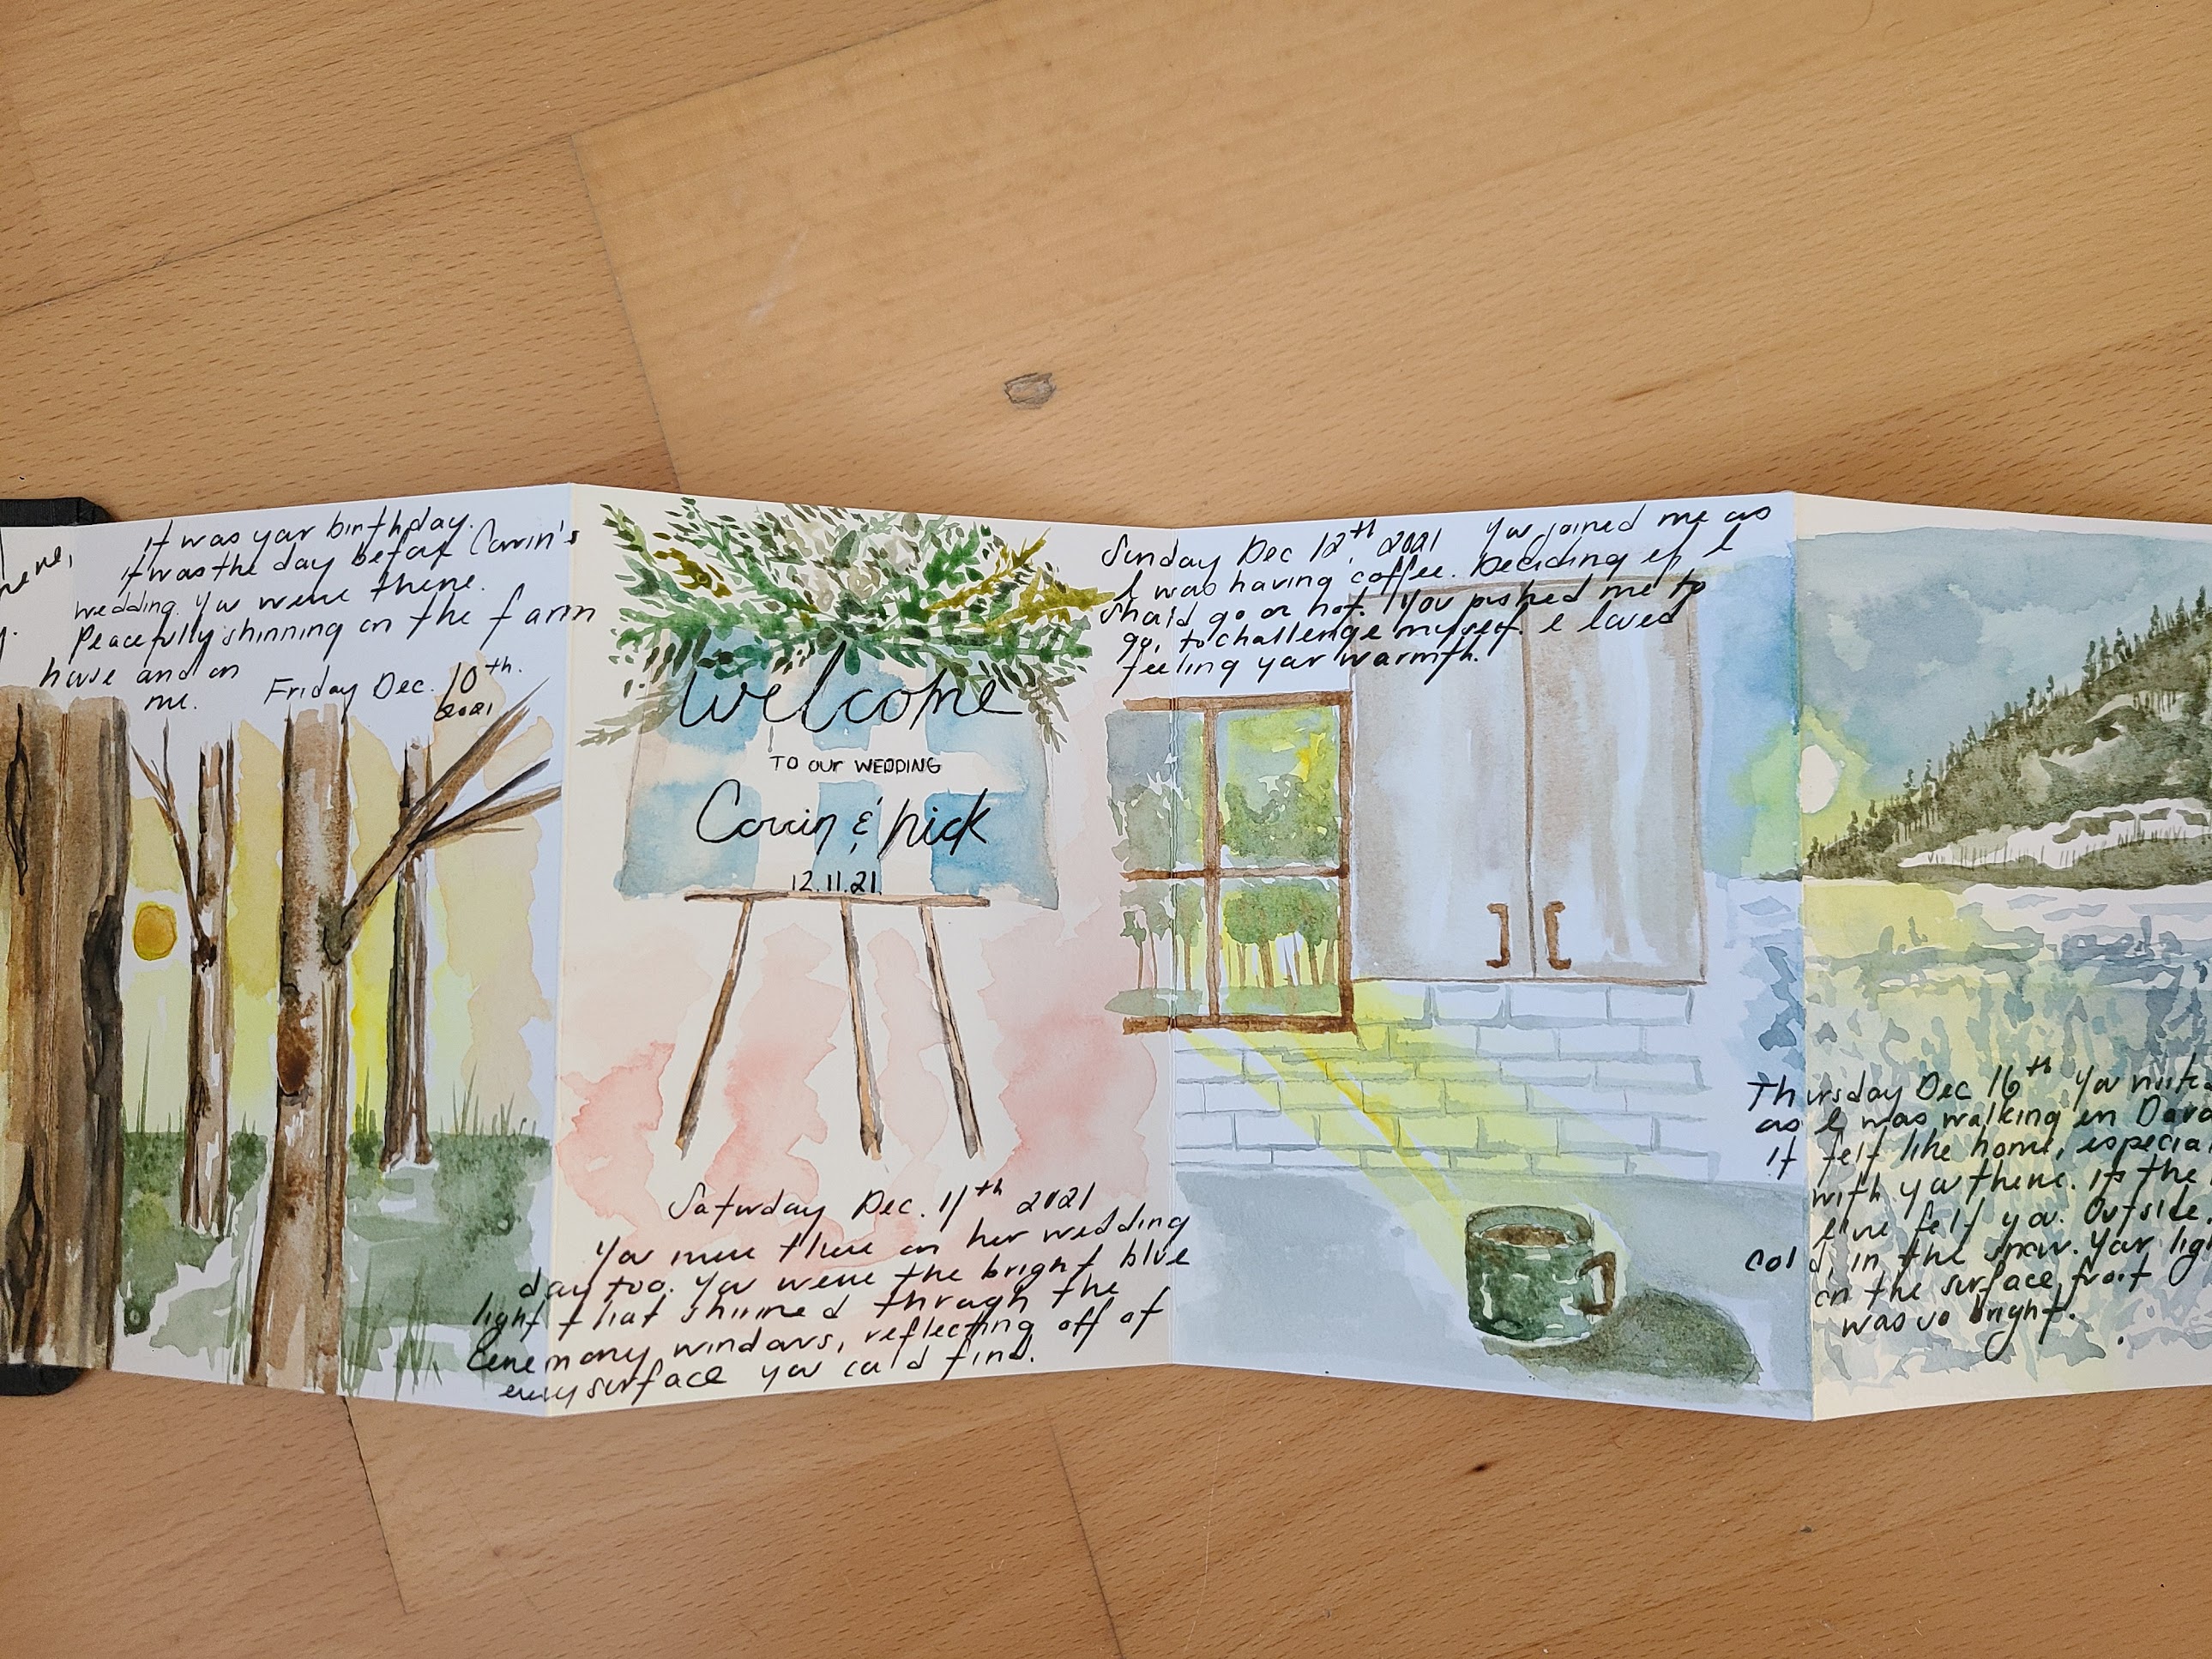 it was your birthday.
it was the day before Corrin's
wedding. You were there.
Peacefully shinning on the farm
house and on
me.
Friday Dec. 10th.
2021
welcome
TO OUR WEDDING
Corrin & Nick
12.11.21.
Saturday Dec. 11th 2021
You were there on her wedding
day too. You were the bright blue
light that shinned through the
Ceremony windows, reflecting off of
every surface you could find.
Sunday Dec 12th, 2021 You joined me as
I was having coffee. Deciding if I
should go or not. You pushed me to
go, to challenge myself. I loved
feeling your warmth.
Thursday Dec 16th You
as I was walking in
it felt like home,
with you there. its the
I've felt you. Outside.
Cold, in the snow. Your
on the surface frost
was so bright.